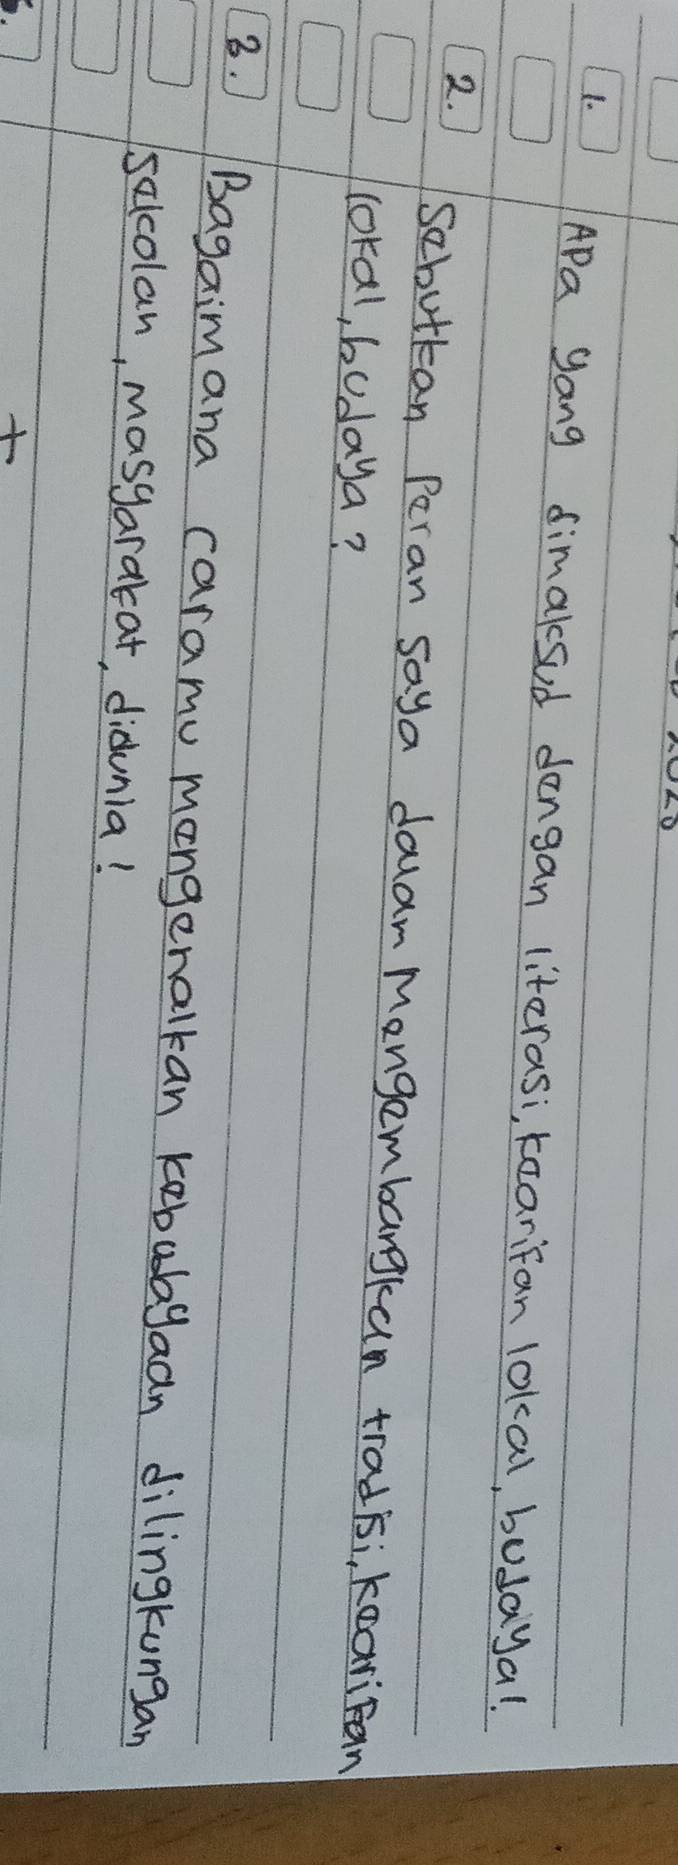 1. Apa yang dimaksud dengan literasi, kearifan lokal, budaya!
2. Sebutkan Peran saya dalam Mengembangkan tradisi, kearifan
lokal, budaya?
3. Bagaimana caramu mengenalkan kebudayaan dilingkungan
sekolan, masyarakat, didunia!